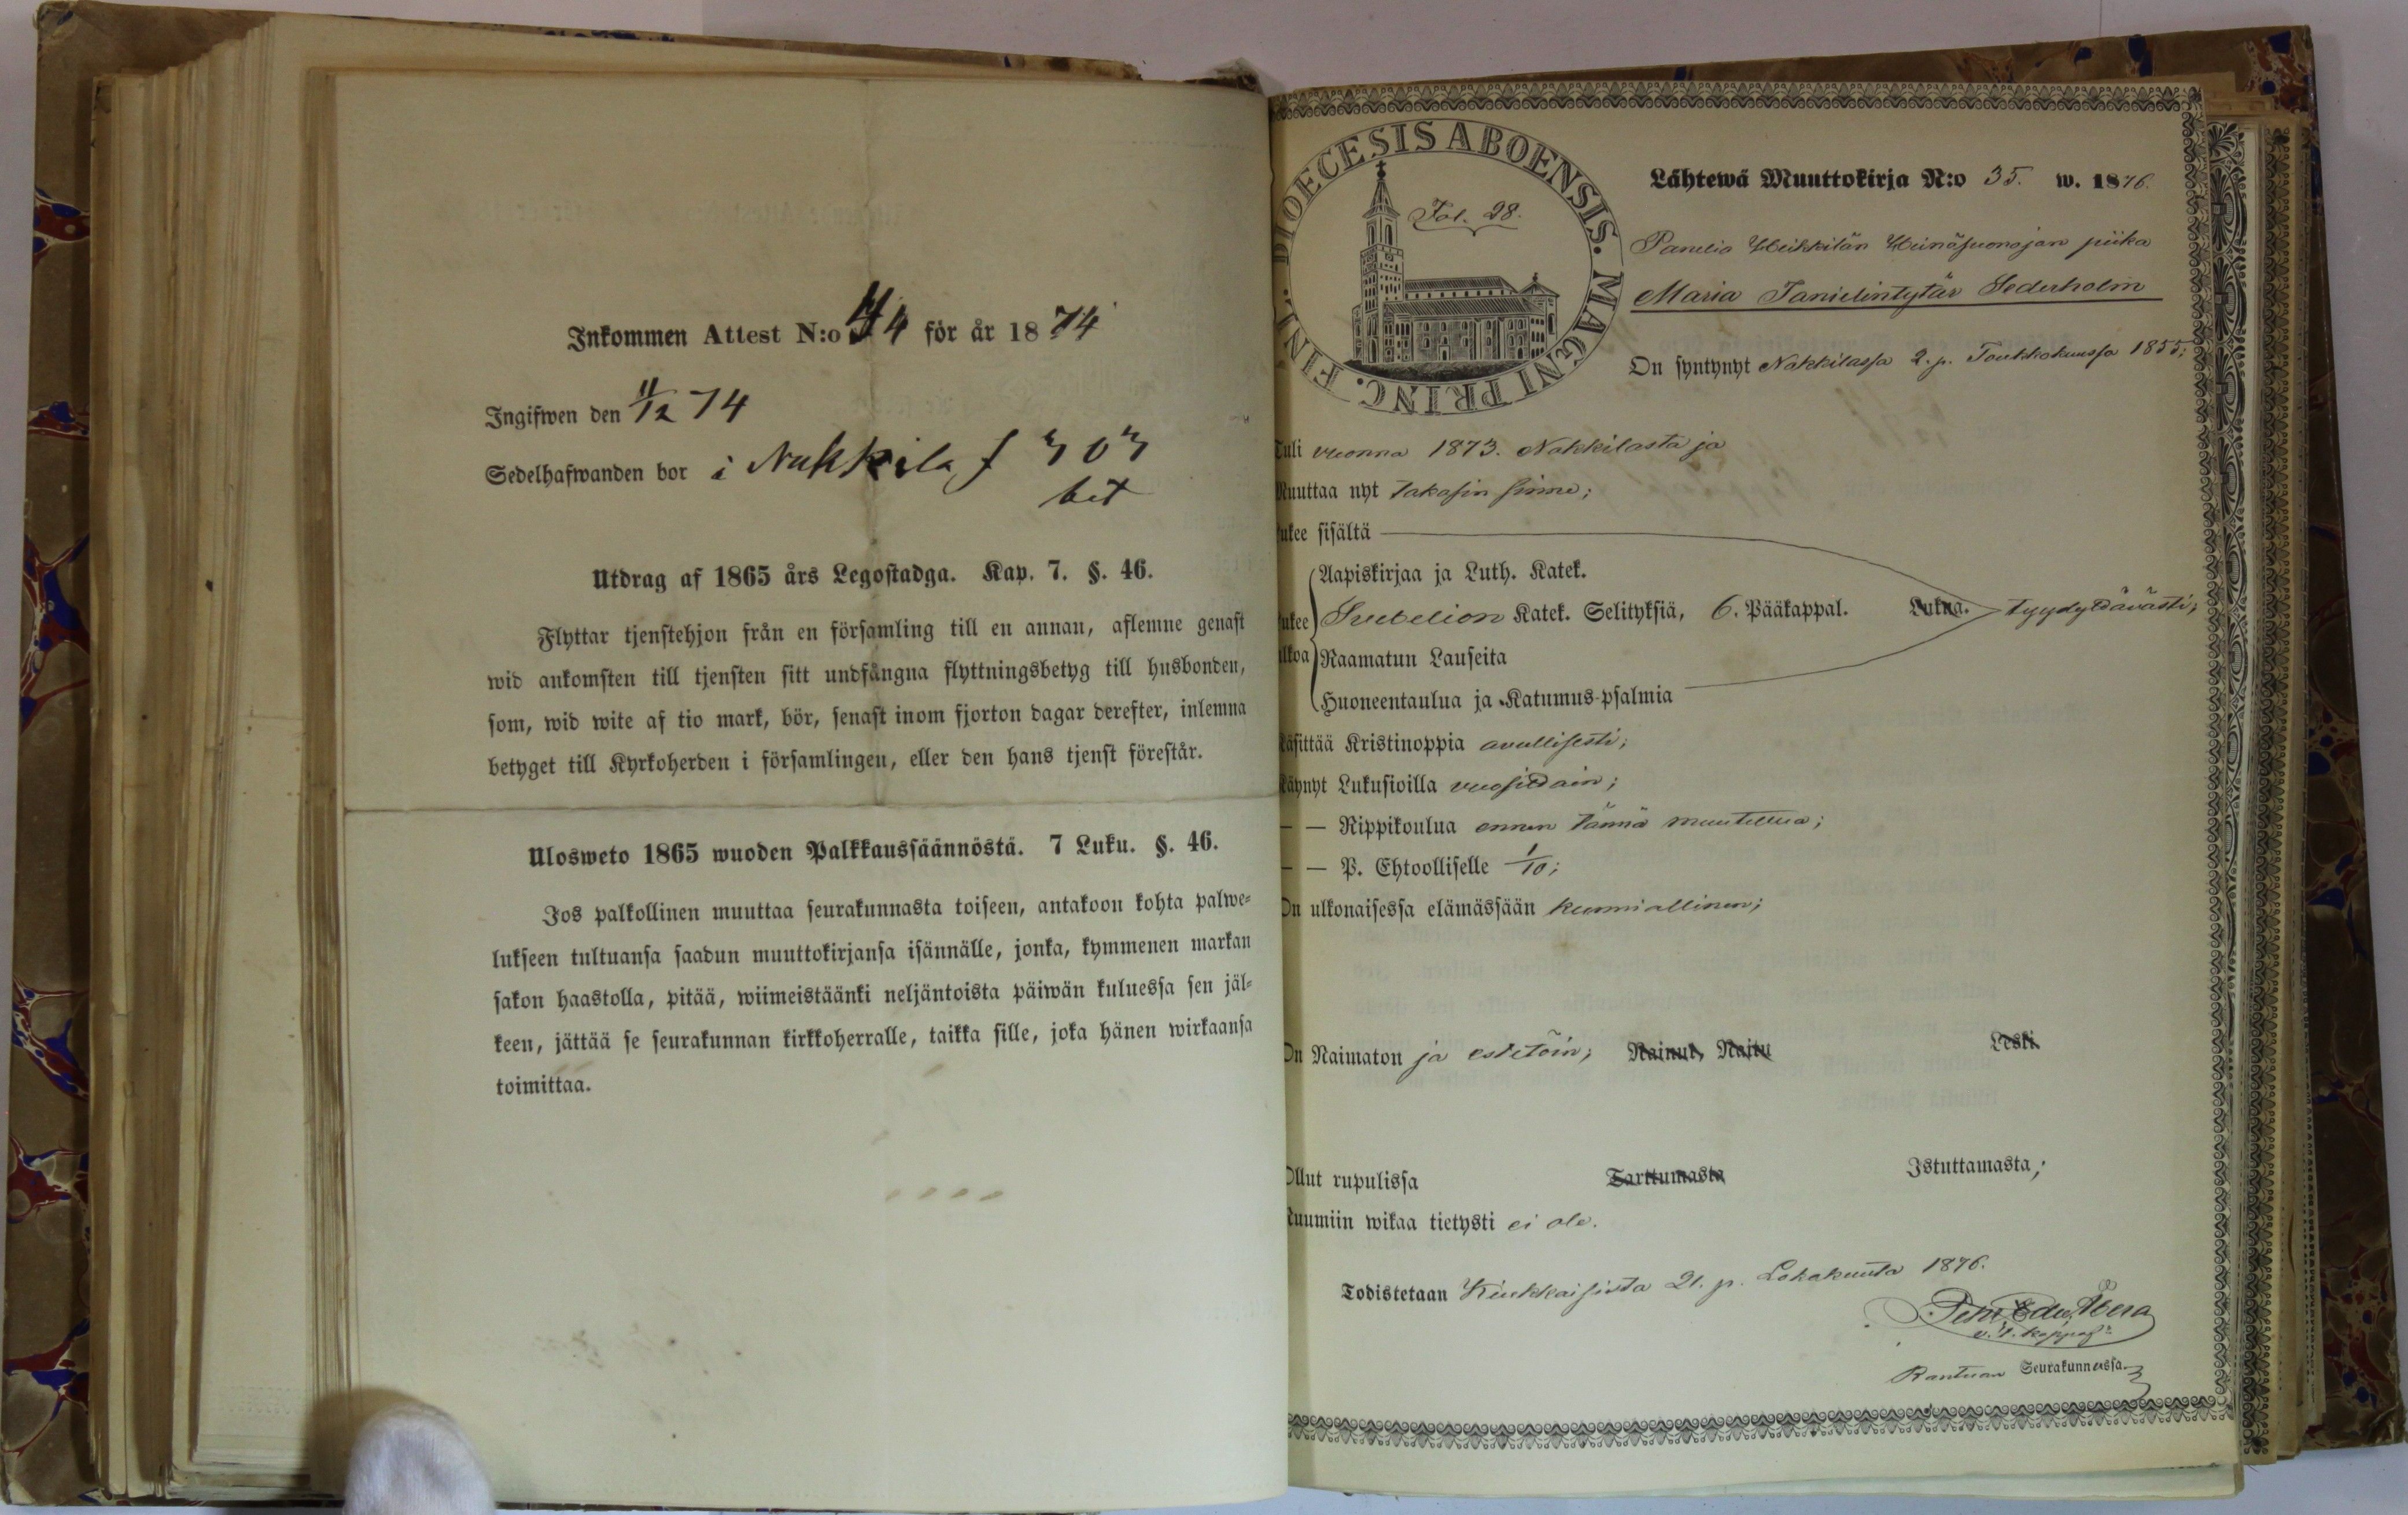 Inkommen Attest N:o 44 för år 1874
Ingifwen den 11/12 74
Sedelhafwanden bor i Nakkila f 303
bet
Utdrag af 1865 års Legostadga. Kap. 7. §. 46.
Flyttar tjenstehjon från en församling till en annan, aflemne genast
wid ankomsten till tjensten sitt undfångna flyttningsbetyg till husbonden,
som, wid wite af tio mark, bör, senast inom fjorton dagar derefter, inlemna
betyget till Kyrkoherden i församlingen, eller den hans tjenst förestår.
Ulosweto 1865 wuoden Palkkaussäännöstä. 7 Luku. §. 46.
Jos palkollinen muuttaa seurakunnasta toiseen, antakoon kohta palwe-
lukseen tultuansa saadun muuttokirjansa isännälle, jonka, kymmenen markan
sakon haastolla, pitää, wiimeistäänki neljäntoista päiwän kuluessa sen jäl-
keen, jättää se seurakunnan kirkkoherralle, taikka sille, joka hänen wirkaansa
toimittaa.
DIOECESIS ABOENSIS. MAGNI PRINC. FINL.
Fol. 28.
Lähtewä Muuttokirja N:o 35. w. 1876.
Panelia Heikkilän Heinäsuonojan piika
Maria Tanielintytär Sederholm
On syntynyt Nakkilassa 2. p. Toukkokuussa 1855;
Tuli vuonna 1873. Nakkilasta ja
Muuttaa nyt takasin sinne;
Lukee sisältä
Aapiskirjaa ja Luth. Katek.
Lukee Svebelion Katek. Selityksiä, 6. Pääkappal. Lukua. tyydyttävästi;
ulkoa Raamatun Lauseita
Huoneentaulua ja Katumus-psalmia
Käsittää Kristinoppia avullisesti;
Käynyt Lukusioilla vuosittain;
— — Rippikoulua ennen tänne muuttoua;
— — P. Ehtoolliselle 1/10;
On ulkonaisessa elämässään kunniallinen;
On Naimaton ja estetöin; Nainut, Naitu Leski.
Ollut rupulissa Tarttumasta Istuttamasta;
Ruumiin wikaa tietysti ei ole.
Todistetaan Kiukkaisista 21. p. Lokakuuta 1876.
v. t. kappal:
Seurakunnassa.